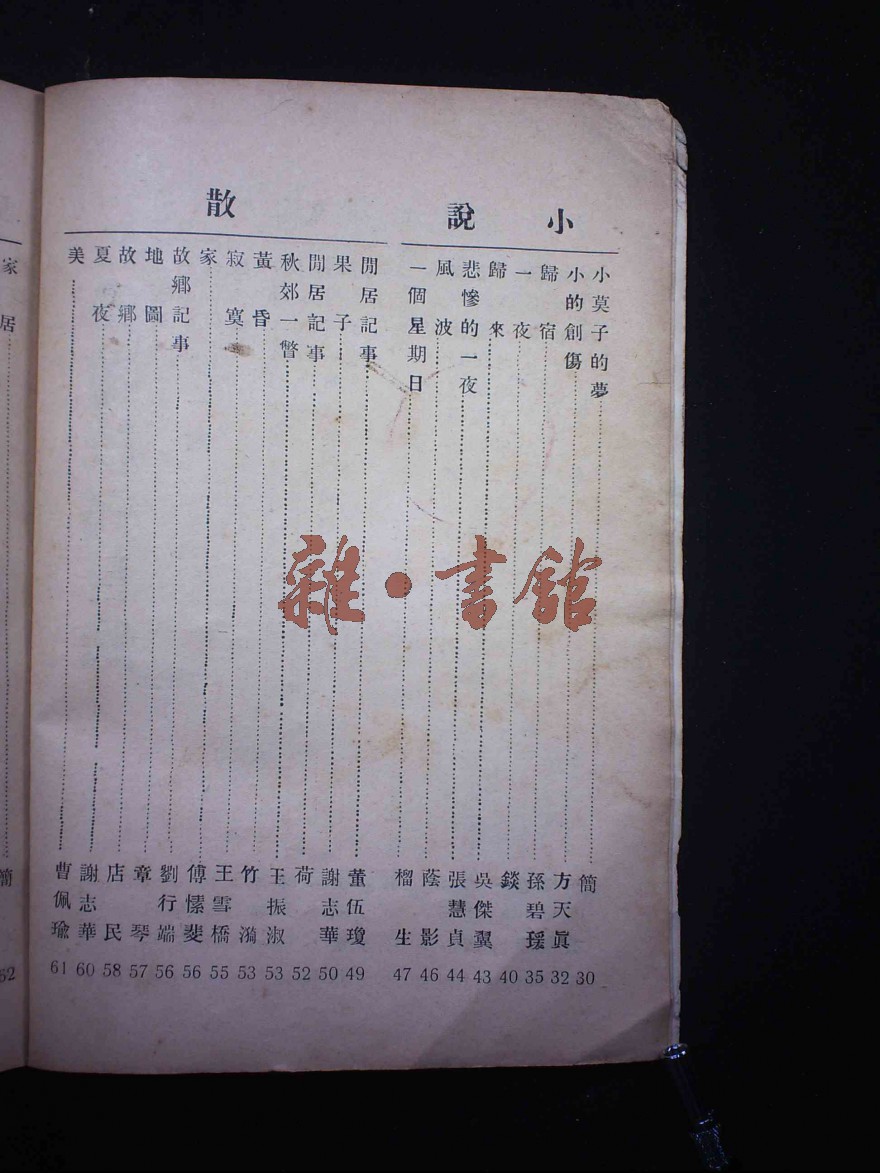 小說
小莫子的夢 簡 30
小的創傷 方天眞 32
歸宿 孫碧瑗 35
一夜 錟 40
歸來 吳傑翼 43
悲慘的一夜 張慧貞 44
風波 蔭影 46
一個星期日 榴生 47
散
閒居記事 董伍瓊 49
果子 謝志華 50
閒居記事 荷 52
秋郊一瞥 王振淑 53
黃昏 竹漪 53
寂寞 王雪橋 55
家 傅愫斐 56
故鄉記事 劉行端 56
地圖 章琴 57
故鄉 店民 58
夏夜 謝志華 60
美 曹佩瑜 61
家居 簡 62
雜·書舘